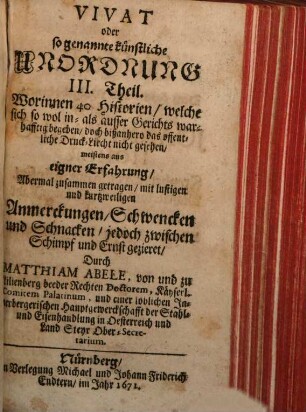 VIVAT
oder
so genannte künstliche
UNORDNUNG
III. Theil.
Worinnen 40. Historien/ welche
sich so wol in- als ausser Gerichts war-
hafftig begeben/ doch bißanhero das offent-
liche Druck-Liecht nicht gesehen/
meistens aus
eigner Erfahrung/
Abermal zusammen getragen/ mit lustigen
und kurtzweiligen
Anmerckungen/ Schwencken
und Schnacken/ jedoch zwischen
Schimpf und Ernst gezieret/
Durch
MATTHIAM ABELE, von und zu
ilienberg beeder Rechten Doctorem, Käyserl.
Comitem Palatinum, und einer löblichen In-
erbergerischen Hauptgewerckschafft der Stahl-
und Eisenhandlung in Oesterreich und
Land Steyr Ober-Secre-
tarium.
Nürnberg/
n Verlegung Michael und Johann Friderich
Endtern/ im Jahr 1671.